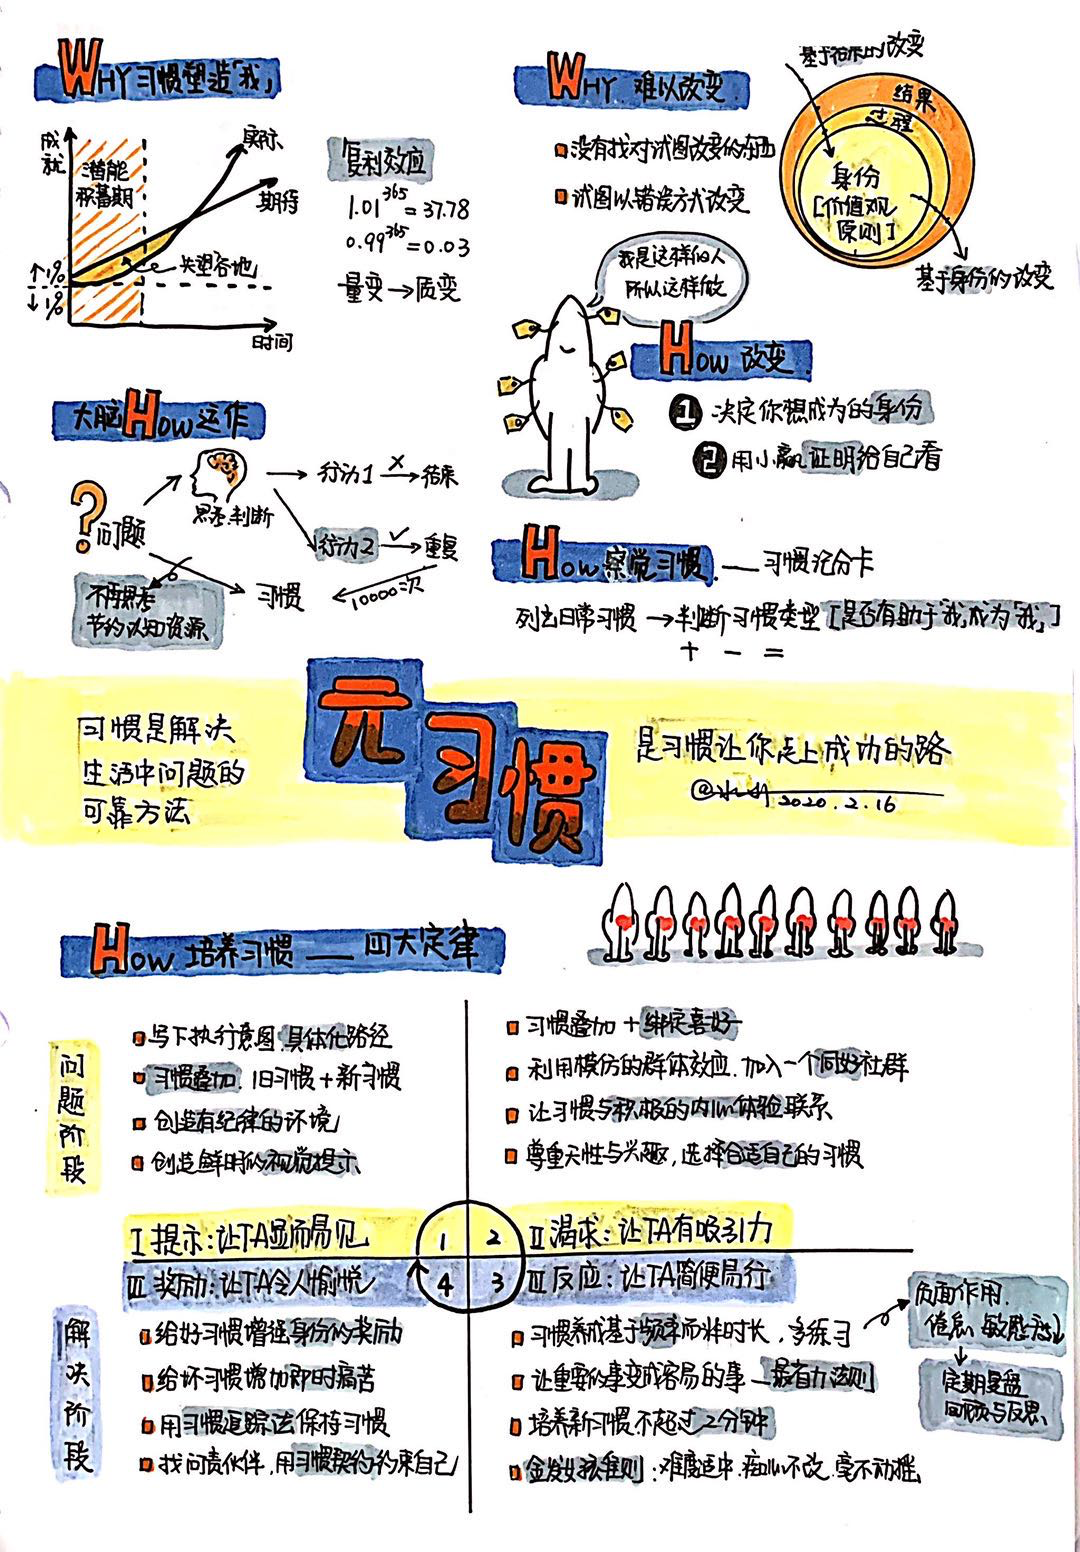 WHY 习惯塑造「我」
成就
实际
期待
潜能
积蓄期
失望谷地
↑1%
↓1%
时间
复利效应
1.01^365=37.78
0.99^365=0.03
量变→质变
WHY 难以改变
没有找对试图改变的东西
试图以错误方式改变
基于结果的改变
结果
过程
身份
[价值观
原则]
基于身份的改变
我是这样的人
所以这样做
HOW 改变
1 决定你想成为的身份
2 用小赢证明给自己看
大脑HOW运作
?问题
思考.判断
行动1 × 结果
行动2 ✓ 重复
10000次
习惯
不再思考
节约认知资源
HOW 察觉习惯 — 习惯记分卡
列出日常习惯→判断习惯类型[是否有助于「我」成为「我」]
+ - =
元习惯
习惯是解决
生活中问题的
可靠方法
是习惯让你走上成功的路
2020.2.16
HOW 培养习惯 — 四大定律
问题阶段
写下执行意图.具体化路径
习惯叠加.旧习惯+新习惯
创造有纪律的环境
创造鲜明的视觉提示
I 提示:让TA显而易见
习惯叠加+绑定喜好
利用模仿的群体效应.加入一个同好社群
让习惯与积极的内心体验联系
尊重天性与兴趣,选择合适自己的习惯
II 渴求:让TA有吸引力
1 2
4 3
解决阶段
III 奖励:让TA令人愉悦
给好习惯增强身份的奖励
给坏习惯增加即时痛苦
用习惯追踪法保持习惯
找问责伙伴,用习惯契约约束自己
III 反应:让TA简便易行
习惯养成基于频率而非时长,多练习
让重要的事变成容易的事—最省力法则
培养新习惯不超过2分钟
金发女孩准则:难度适中.痴心不改.毫不动摇
负面作用.
定期复盘
回顾与反思